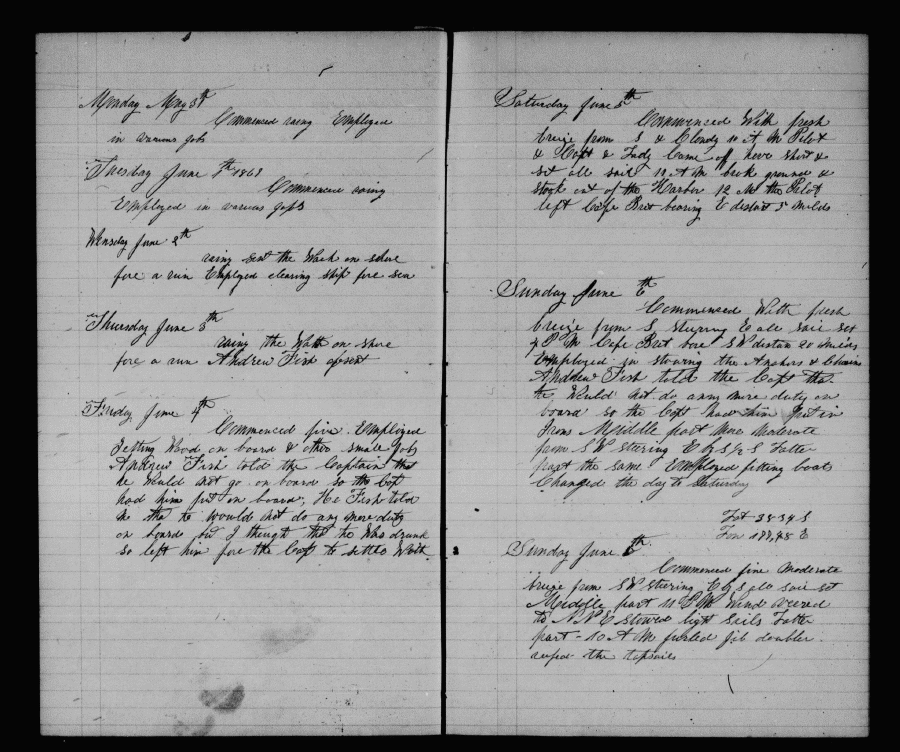 Monday May 31
Commenced raing Employed
in various jobs
Tuesday June 1th 1869
Commenced raing
Employed in various jobs
Wensday June 2th
raing sent the Watch on shore
fore a run Employed clearing ship fore sea
Thursday June 3th
raing the Watch on shore
fore a run Andrew Fish absent
Friday June 4th
Commenced fine. Employed
Getting Wood on board & other small jobs
Andrew Fish told the Captain that
he Would not go on board so the Capt
had him put on board; He Fish told
me tha he would not do any more duty
on board but I though tha he Was drunk
so left him fore the Capt to settle With
Saturday June 5th
Commenced With fresh
breize from S & Cloudy 10 A M Pilot
& Capt & Lady Came of hove Short &
set all sail 11 A M broke ground &
stood out of the Harbor 12 M the Pilot
left Cape Bret bearing E distant 5 miles
Sunday June 6th
Commenced With fresh
breize from S steering E all sail set
P M Cape Bret bore SW distan 20 miles
Employed in stowing the Anchors & Chains
Andrew Fish told the Capt tha
he Would not do anny more duty on
board so the Capt had him put in
Irons Middle part More Moderate
from SW steering E by S 1/2 S Latter
part the same Employed fitting boats
Changed the day to Saturday
Lat 35 34 S
Lon 179,48 E
Sunday June 6th
Commenced fine Moderate
breize from SW steering E by S all sail set
Middle part 11 P M Wind veered
to NNE stowed light sails Latter
part - 10 A M furled jib double
reefed the topsails